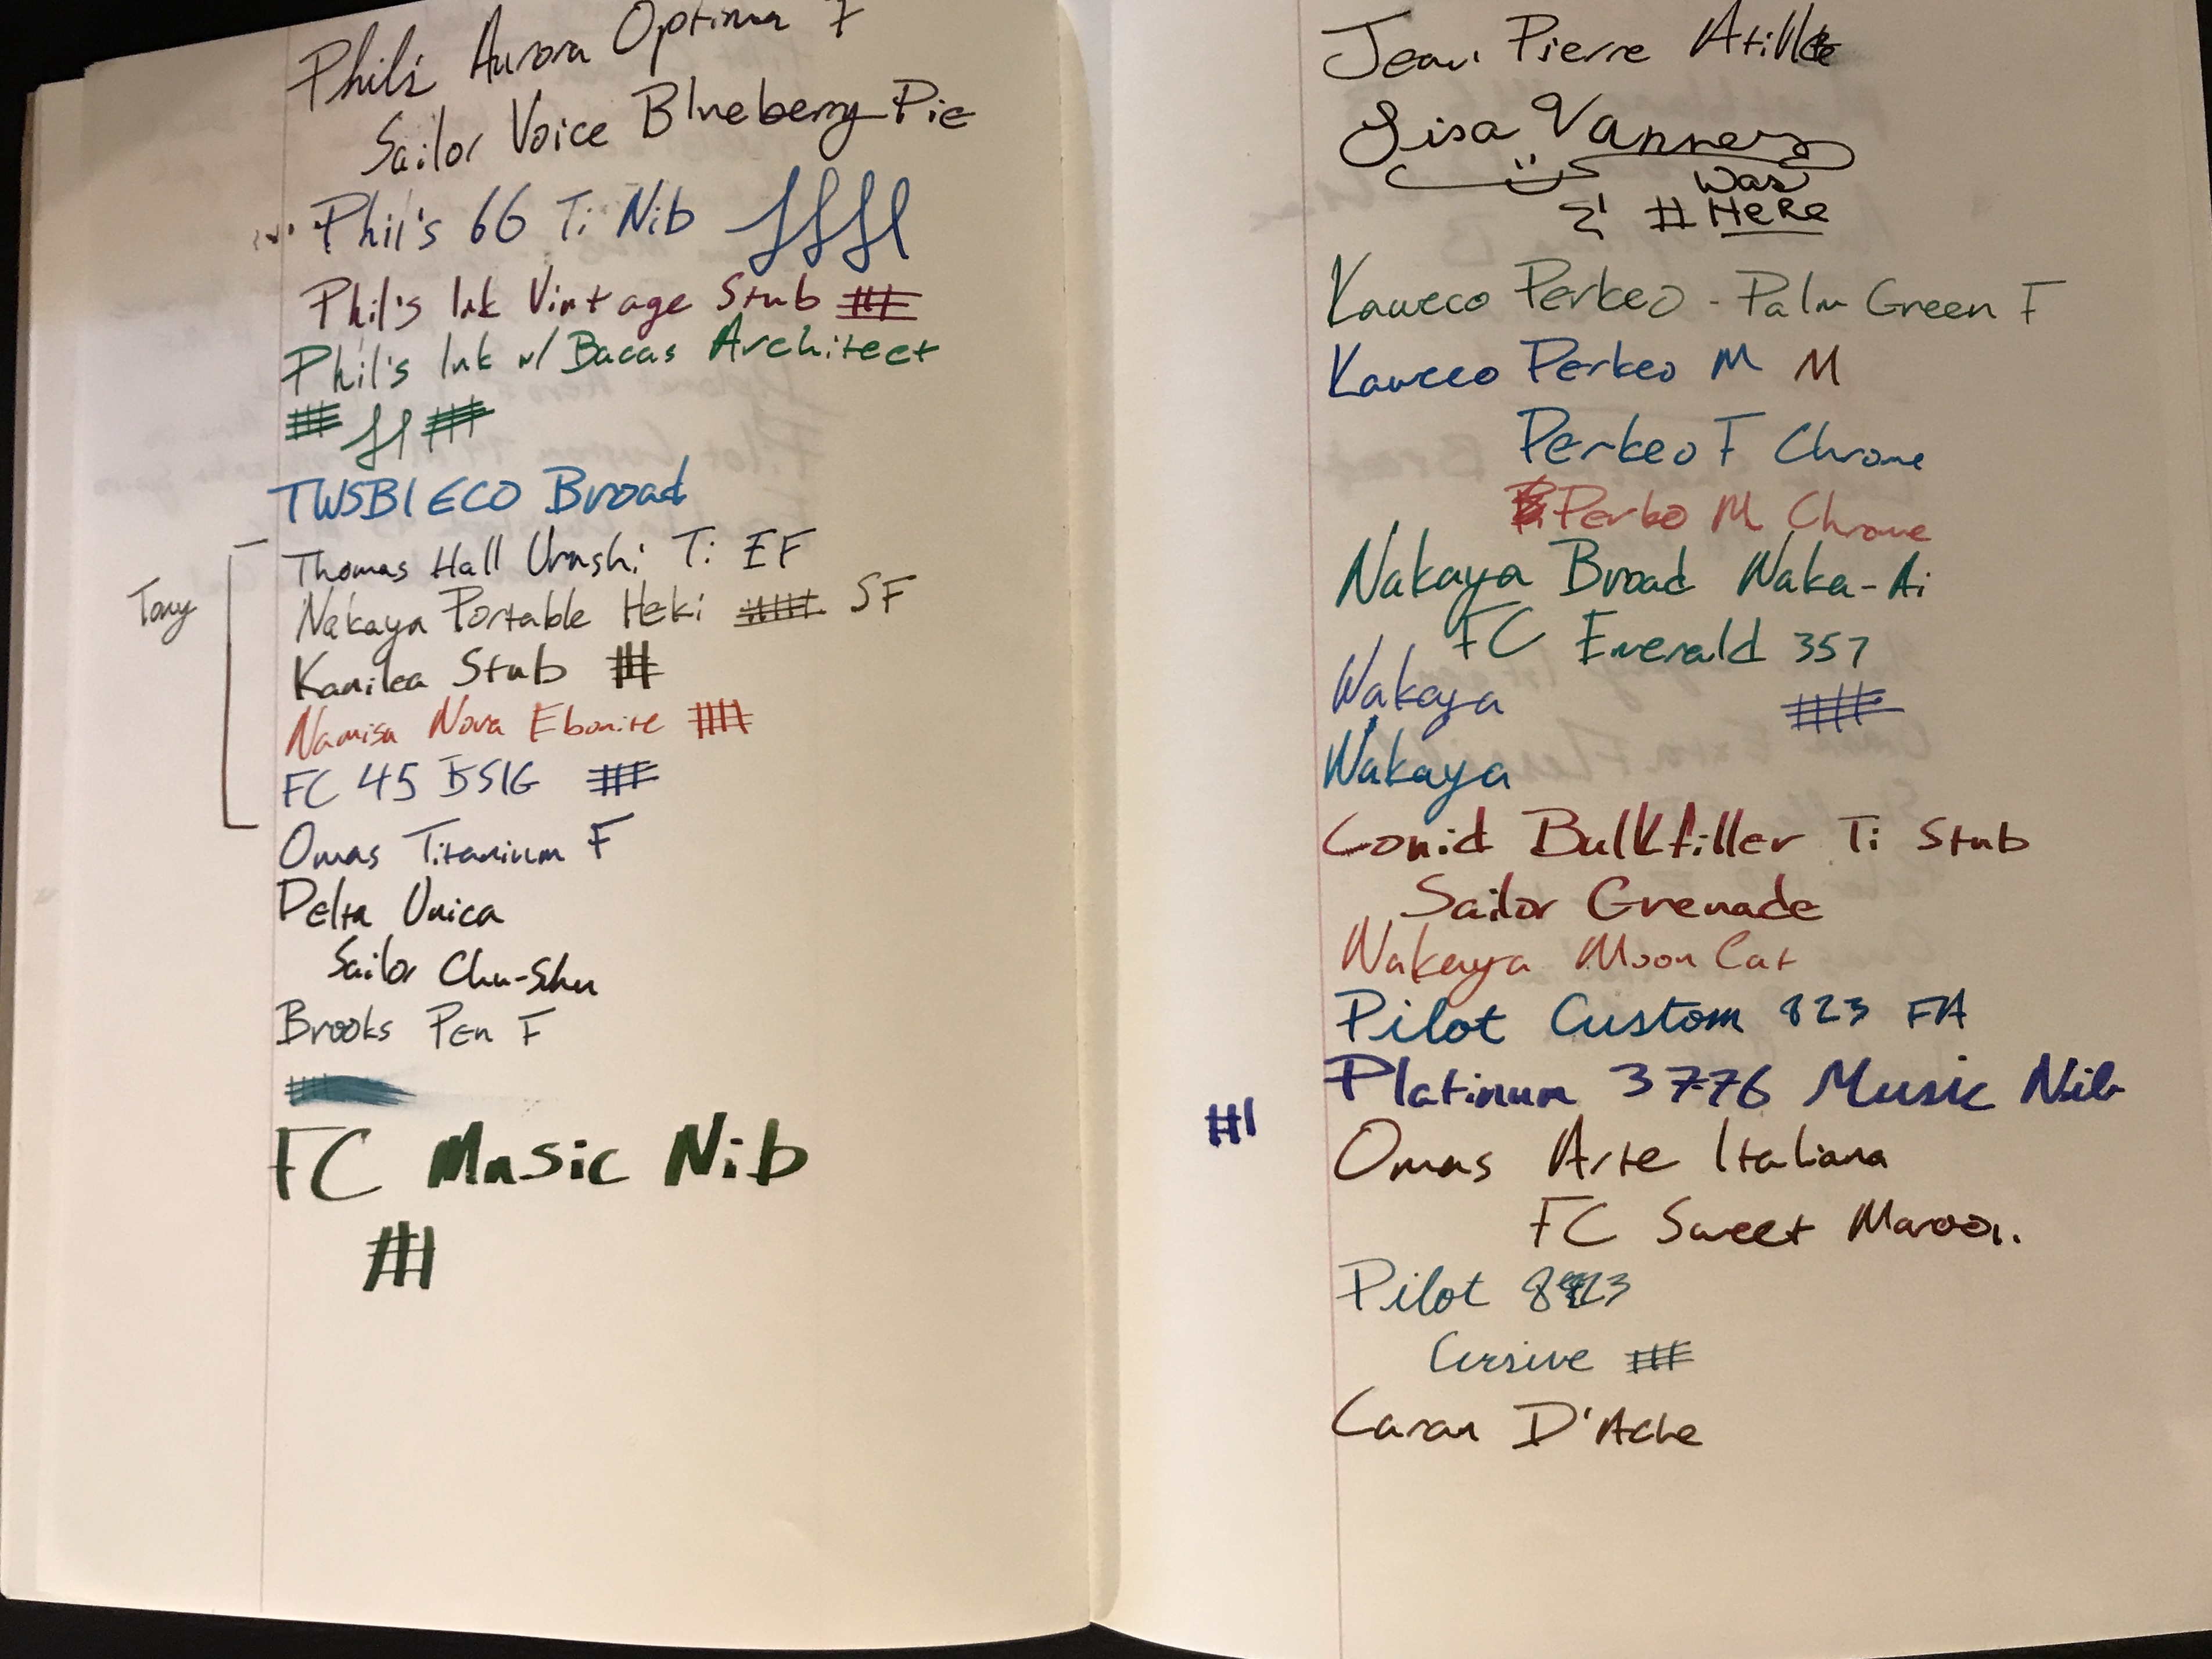 Phil's Aurora Optima F
Sailor Voice Blueberry Pie
Phil's 66 Ti Nib
Phil's Ink Vintage Stub
Phil's Ink w/ Bacas Architect
TWSBI ECO Broad
Tony
Thomas Hall Urushi Ti EF
Nakaya Portable Heki SF
Kanilea Stub
Namisu Nova Ebonite
FC 45 BSIG
Omas Titanium F
Delta Unica
Sailor Chu-Shu
Brooks Pen F
FC Music Nib
Jean Pierre
Lisa Vanness
was
# HeRe
Kaweco Perkeo - Palm Green F
Kaweco Perkeo M M
Perkeo F Chrome
Perko M Chrome
Nakaya Broad Naka-Ai
FC Emerald 357
Nakaya
Nakaya
Conid Bulkfiller Ti Stub
Sailor Grenade
Nakaya Moon Cat
Pilot Custom 823 FA
Platinum 3776 Music Nib
Omas Arte Italiana
FC Sweet Maroon
Pilot 823
Cursive
Caran D'Ache